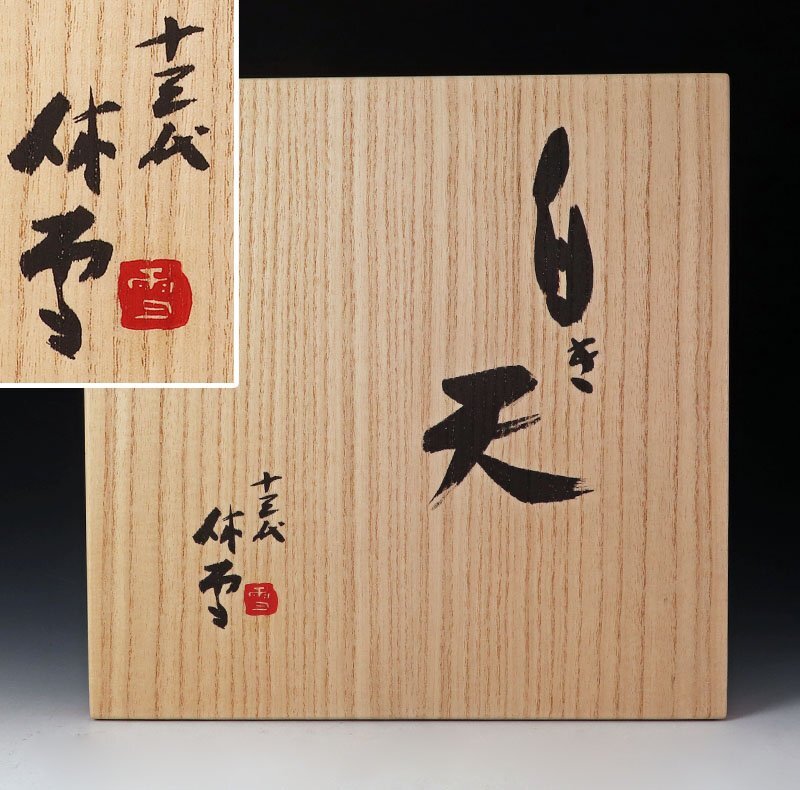 十三代
休雪
雪
白き
天
十三代
休雪
雪